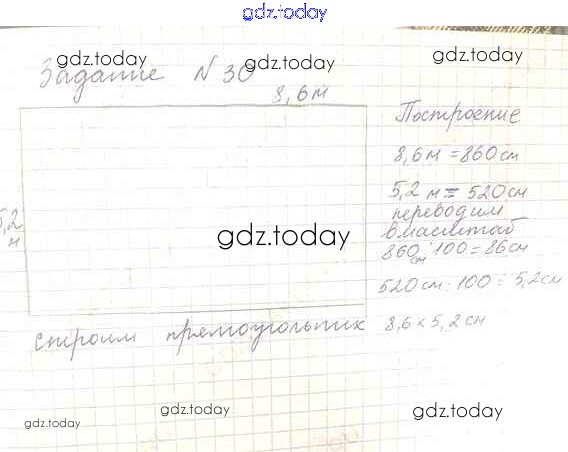 gdz.today
gdz.today
gdz.today
gdz.today
Задание N 30
8,6м
Построение
8,6м = 860 см
5,2 м = 520 см
5,2
м
переводим
в масштаб
gdz.today
860 см : 100 = 86см
520 см : 100 = 5,2см
строим прямоугольник
8,6 × 5,2 см
gdz.today
gdz.today
gdz.today